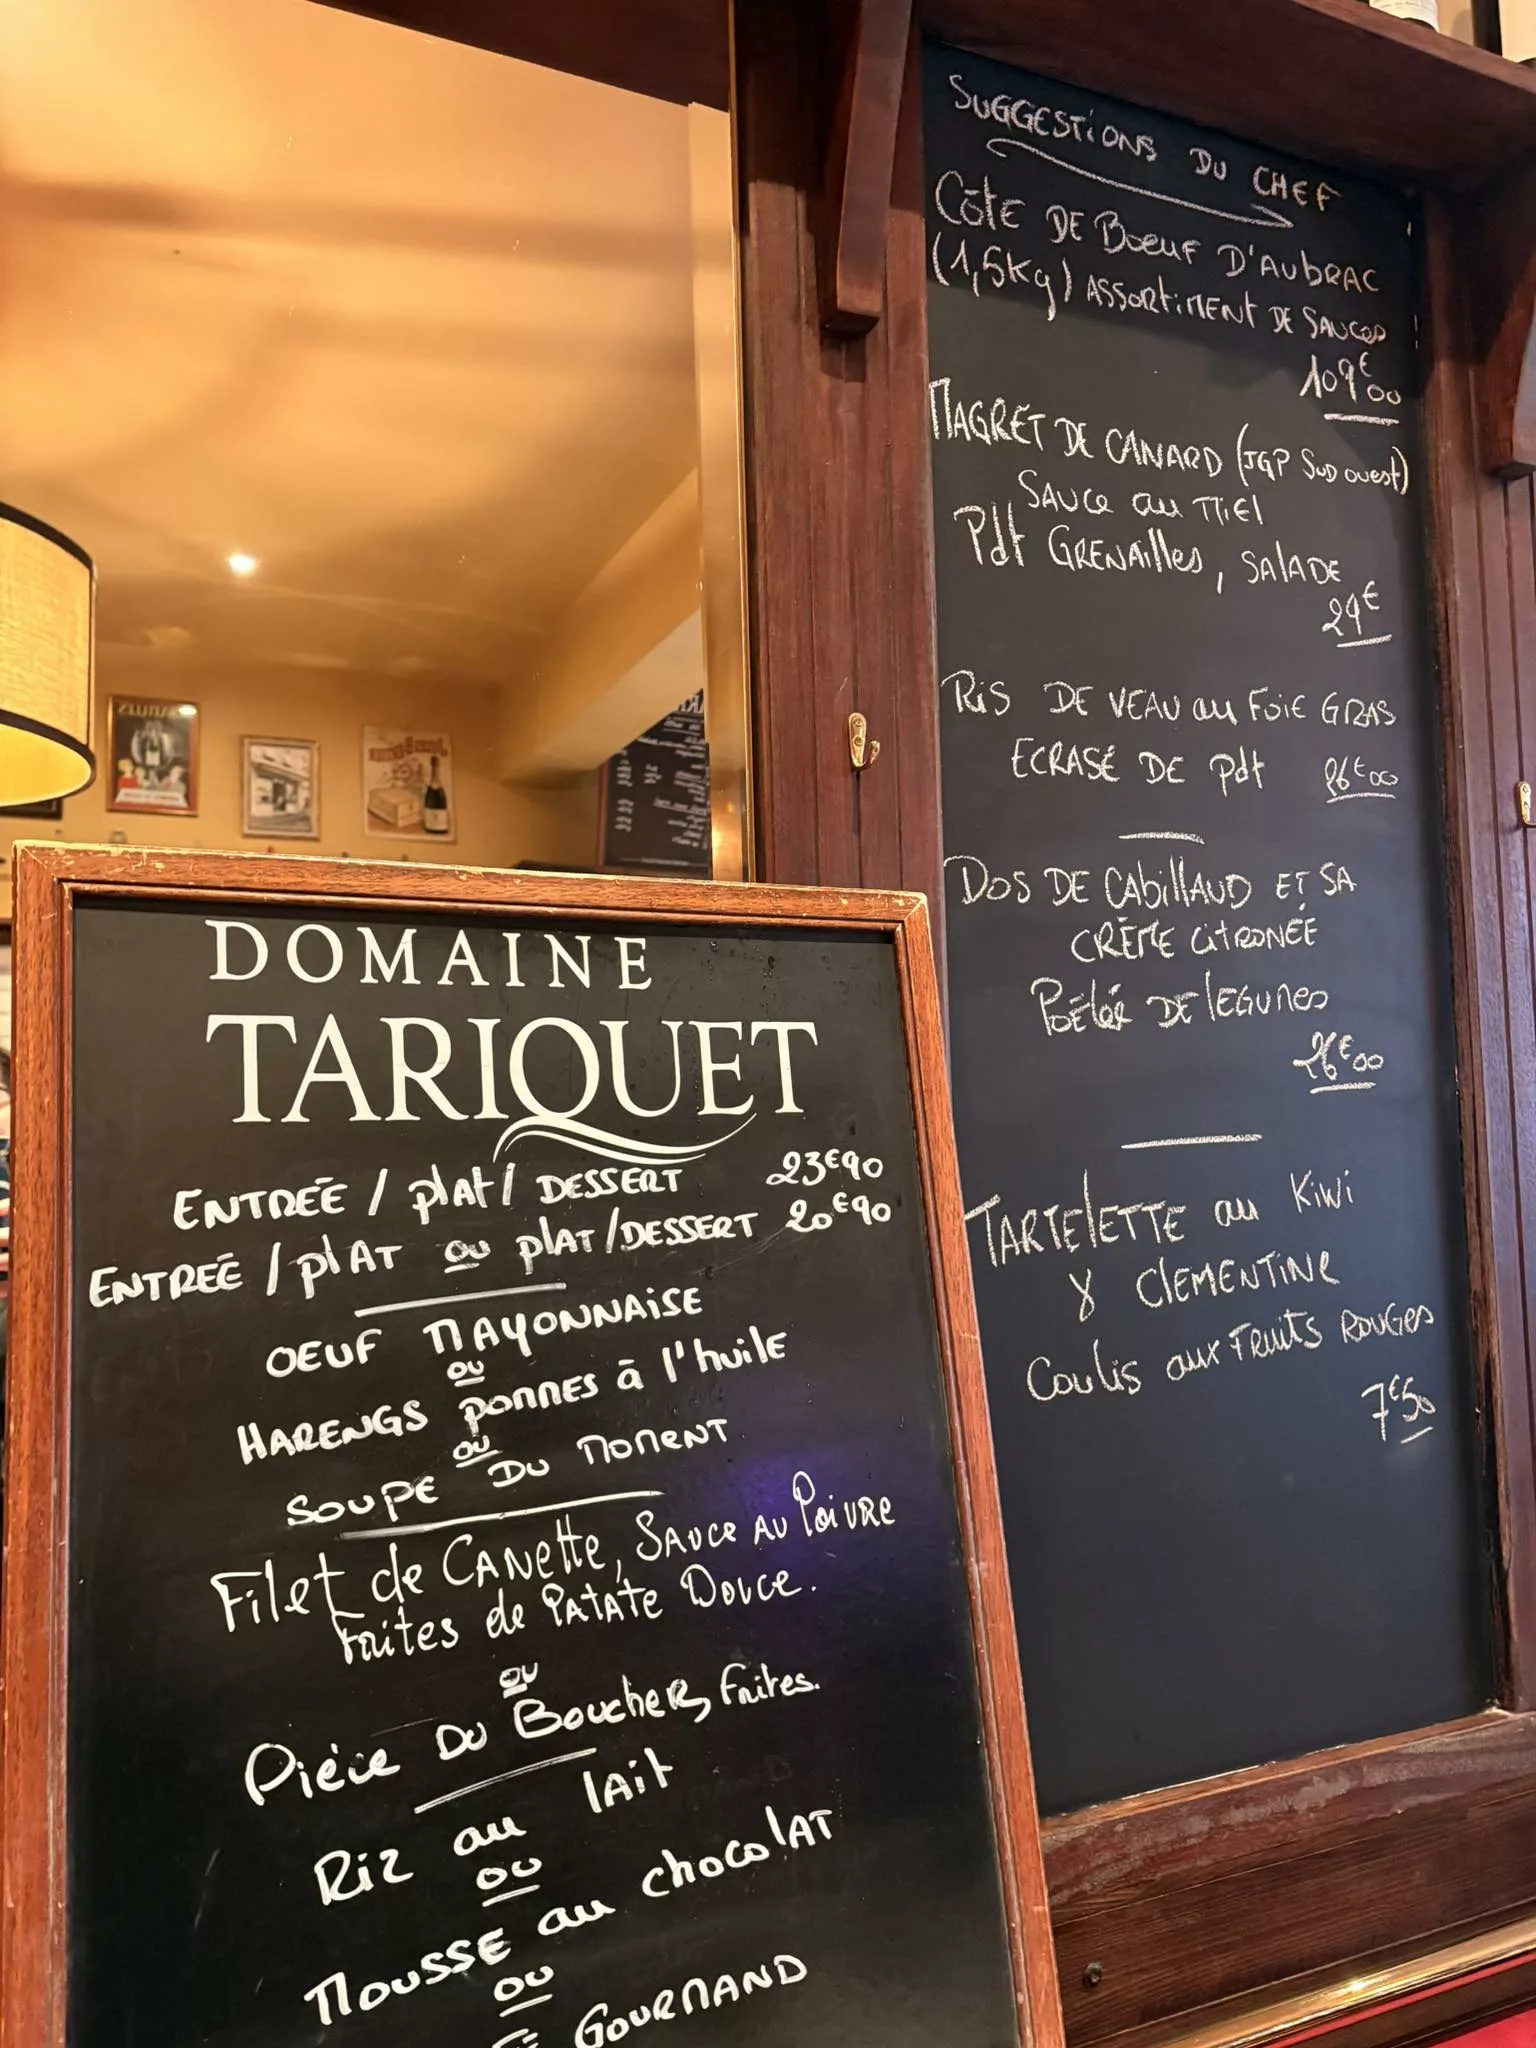 DOMAINE
TARIQUET
ENTREÉ / plAt / DESSERT 23€90
ENTREÉ / plAT ou plAT/DESSERT 20€90
OEUF MAYONNAISE
ou
HARENGS POMMES à l'huile
ou
SOUPE DU MOMENT
Filet de CANette, SAuce AU Poivre
frites de PATATE Douce.
ou
Pièce DU Boucher, frites.
Riz au lAit
ou
MOUSSE au chocolAT
ou
GOURMAND
SUGGESTIONS DU CHEF
CÔTE DE BOEUF D'AUBRAC
(1,5Kg) ASSORTIMENT DE SAUCES
109€00
MAGRET DE CANARD (IGP SUD OUEST)
SAUCE au MIEl
Pdt GRENAIlles, SALADE
29€
RIS DE VEAU au FOIE GRAS
ECRASÉ DE Pdt 26€00
DOS DE CAbillAUD ET SA
CRÈME CITRONÉE
POÊLÉE DE lEGUMES
26€00
TARTElETTE au KIWI
& CLEMENTINE
COULIS aux FRUITS ROUGES
7€50